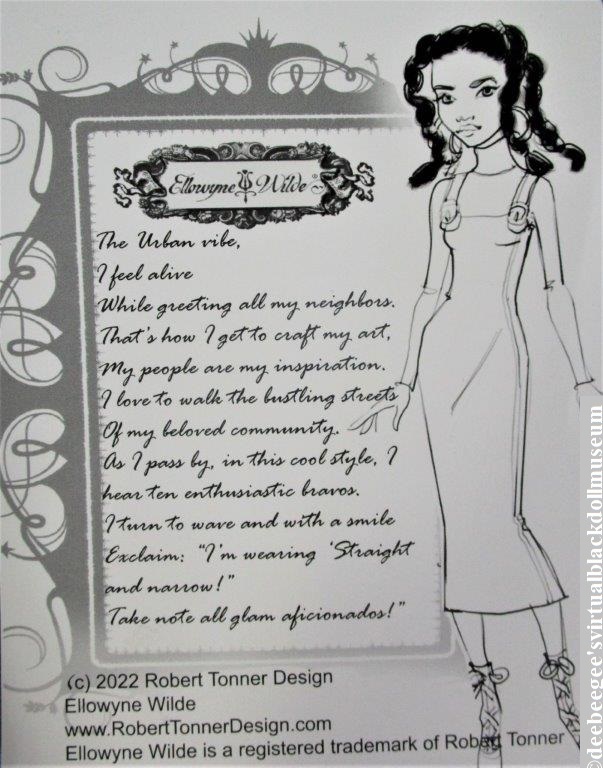 Ellowyne Wilde®
The Urban vibe,
I feel alive
While greeting all my neighbors.
That's how I get to craft my art,
My people are my inspiration.
I love to walk the bustling streets
Of my beloved community.
As I pass by, in this cool style, I
hear ten enthusiastic bravos.
I turn to wave and with a smile
Exclaim: "I'm wearing 'Straight
and narrow!"
Take note all glam aficionados!"
(c) 2022 Robert Tonner Design
Ellowyne Wilde
www.RobertTonnerDesign.com
Ellowyne Wilde is a registered trademark of Robert Tonner
©deebeegee'svirtualblackdollmuseum